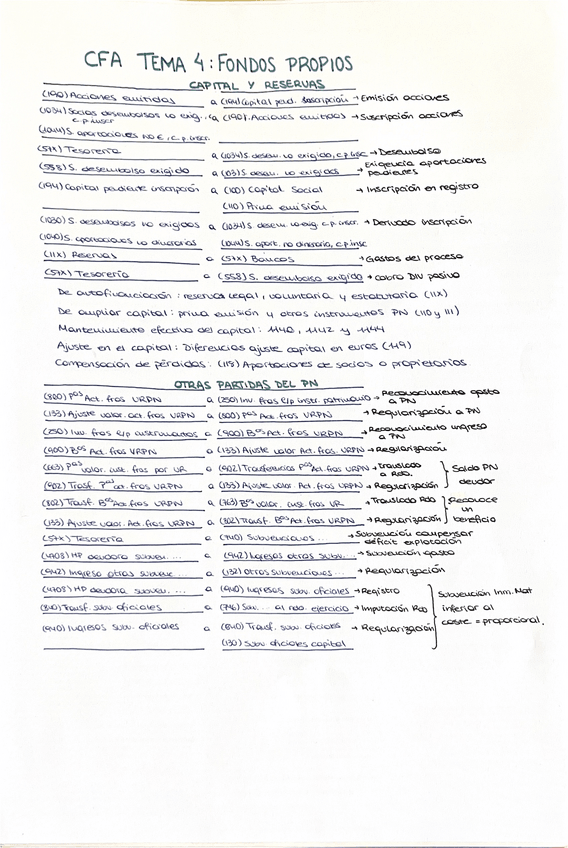 CFA TEMA 4: FONDOS PROPIOS
CAPITAL Y RESERVAS
(190) Acciones emitidas a (194) Capital pend. Inscripción → Emisión acciones
(1034) Socios desembolsos no exig., a (190) Acciones emitidas) → Suscripción acciones
c.p. inscr
(1044) S. aportaciones NO E, c.p. inscr.
(57X) Tesorería a (1034) S. desem. no exigido, c.p. insc → Desembolso
(558) S. desembolso exigido a (103) S. desem. no exigidos → Exigencia aportaciones pendientes
(194) Capital pendiente inscripción a (100) Capital Social → Inscripción en registro
(110) Prima emisión
(1030) S. desembolsos no exigidos a (1034) S. desem. no exig. c.p. inscr. → Derivado inscripción
(1040) S. aportaciones no dinerarias (1044) S. aport. no dineraria, c.p. insc
(11X) Reservas a (57X) Bancos → Gastos del proceso
(57X) Tesorería a (558) S. desembolso exigido → cobro DIV pasivo
De autofinanciación: reserva legal, voluntaria y estatutaria (11X)
De ampliar capital: prima emisión y otros instrumentos PN (110 y 111)
Mantenimiento efectivo del capital: 1140, 1142 y 1144
Ajuste en el capital: Diferencias ajuste capital en euros (119)
Compensación de pérdidas: (118) Aportaciones de socios o propietarios
OTRAS PARTIDAS DEL PN
(800) Pᵃˢ Act. fros VRPN a (250) Inv. fros l/p instr. patrimonio → Reconocimiento gasto a PN
(133) Ajuste valor. act. fros VRPN a (800) Pᵃˢ Act. fros VRPN → Regularización a PN
(250) Inv. fros l/p instrumentos a (900) Bᵒˢ Act. fros VRPN → Reconocimiento ingreso a PN
(900) Bᵒˢ Act. fros VRPN a (133) Ajuste valor Act. fros VRPN → Regularización
(663) Pᵃˢ valor. inst. fros por VR a (902) Transferencias Pᵃˢ Act. fros VRPN → traslado a Rdo.
(902) Transf. Pᵃˢ act. fros VRPN a (133) Ajuste valor. Act. fros VRPN → Regularización
Saldo PN deudor
(802) Transf. Bᵒˢ Act. fros VRPN a (763) Bᵒˢ valor. inst. fros VR → Traslado Rdo
(133) Ajuste valor. Act. fros VRPN a (802) Transf. Bᵒˢ Act. fros VRPN → Regularización
Reconoce un beneficio
(57X) Tesorería a (740) Subvenciones... → Subvención compensar déficit explotación
(4708) HP deudora subven. ... a (942) Ingresos otras subv... → Subvención gasto
(942) Ingreso otras subvenc ... a (132) Otras subvenciones ... → Regularización
(4708) HP deudora subven. ... a (940) Ingresos subv. oficiales → Registro
(840) Transf. subv. oficiales a (746) Sub... al rdo. ejercicio → Imputación Rdo
(940) Ingresos Subv. oficiales a (840) Transf. subv. oficiales → Regularización
(130) Subv. oficiales capital
Subvención Inm. Mat inferior al coste = proporcional.